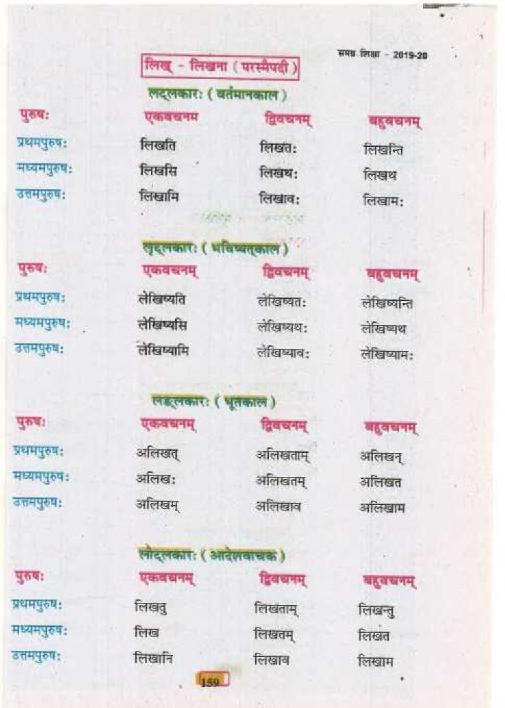 समग्र शिक्षा - 2019-20
लिख् - लिखना ( परस्मैपदी )
लट्लकारः ( वर्तमानकाल )
पुरुषः एकवचनम द्विवचनम् बहुवचनम्
प्रथमपुरुषः लिखति लिखतः लिखन्ति
मध्यमपुरुषः लिखसि लिखथः लिखथ
उत्तमपुरुषः लिखामि लिखावः लिखामः
लृट्लकारः ( भविष्यत्काल )
पुरुषः एकवचनम् द्विवचनम् बहुवचनम्
प्रथमपुरुषः लेखिष्यति लेखिष्यतः लेखिष्यन्ति
मध्यमपुरुषः लेखिष्यसि लेखिष्यथः लेखिष्यथ
उत्तमपुरुषः लेखिष्यामि लेखिष्यावः लेखिष्यामः
लङ्लकारः ( भूतकाल )
पुरुषः एकवचनम् द्विवचनम् बहुवचनम्
प्रथमपुरुषः अलिखत् अलिखताम् अलिखन्
मध्यमपुरुषः अलिखः अलिखतम् अलिखत
उत्तमपुरुषः अलिखम् अलिखाव अलिखाम
लोट्लकारः ( आदेशवाचक )
पुरुषः एकवचनम् द्विवचनम् बहुवचनम्
प्रथमपुरुषः लिखतु लिखताम् लिखन्तु
मध्यमपुरुषः लिख लिखतम् लिखत
उत्तमपुरुषः लिखानि लिखाव लिखाम
159